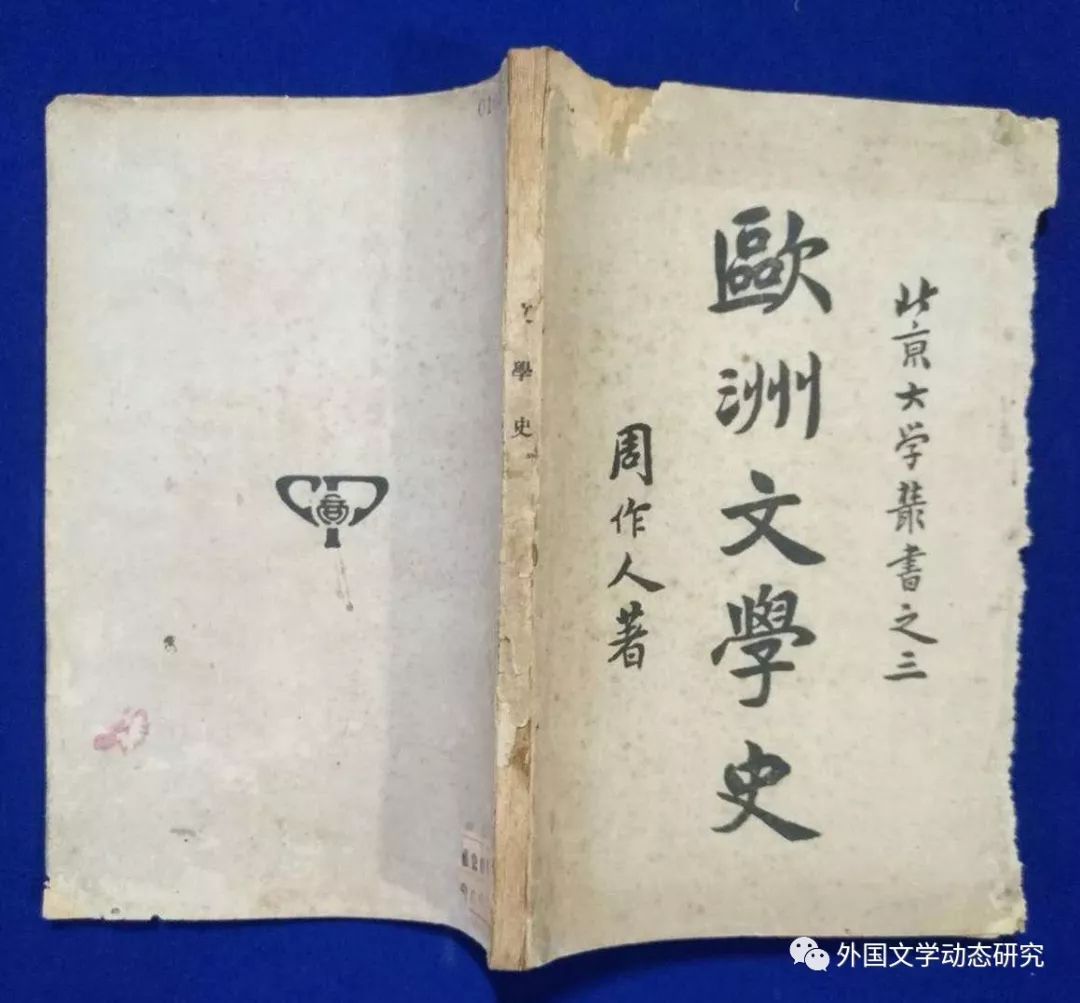 北京大学叢書之三
歐洲文學史
周作人著
學史
外国文学动态研究